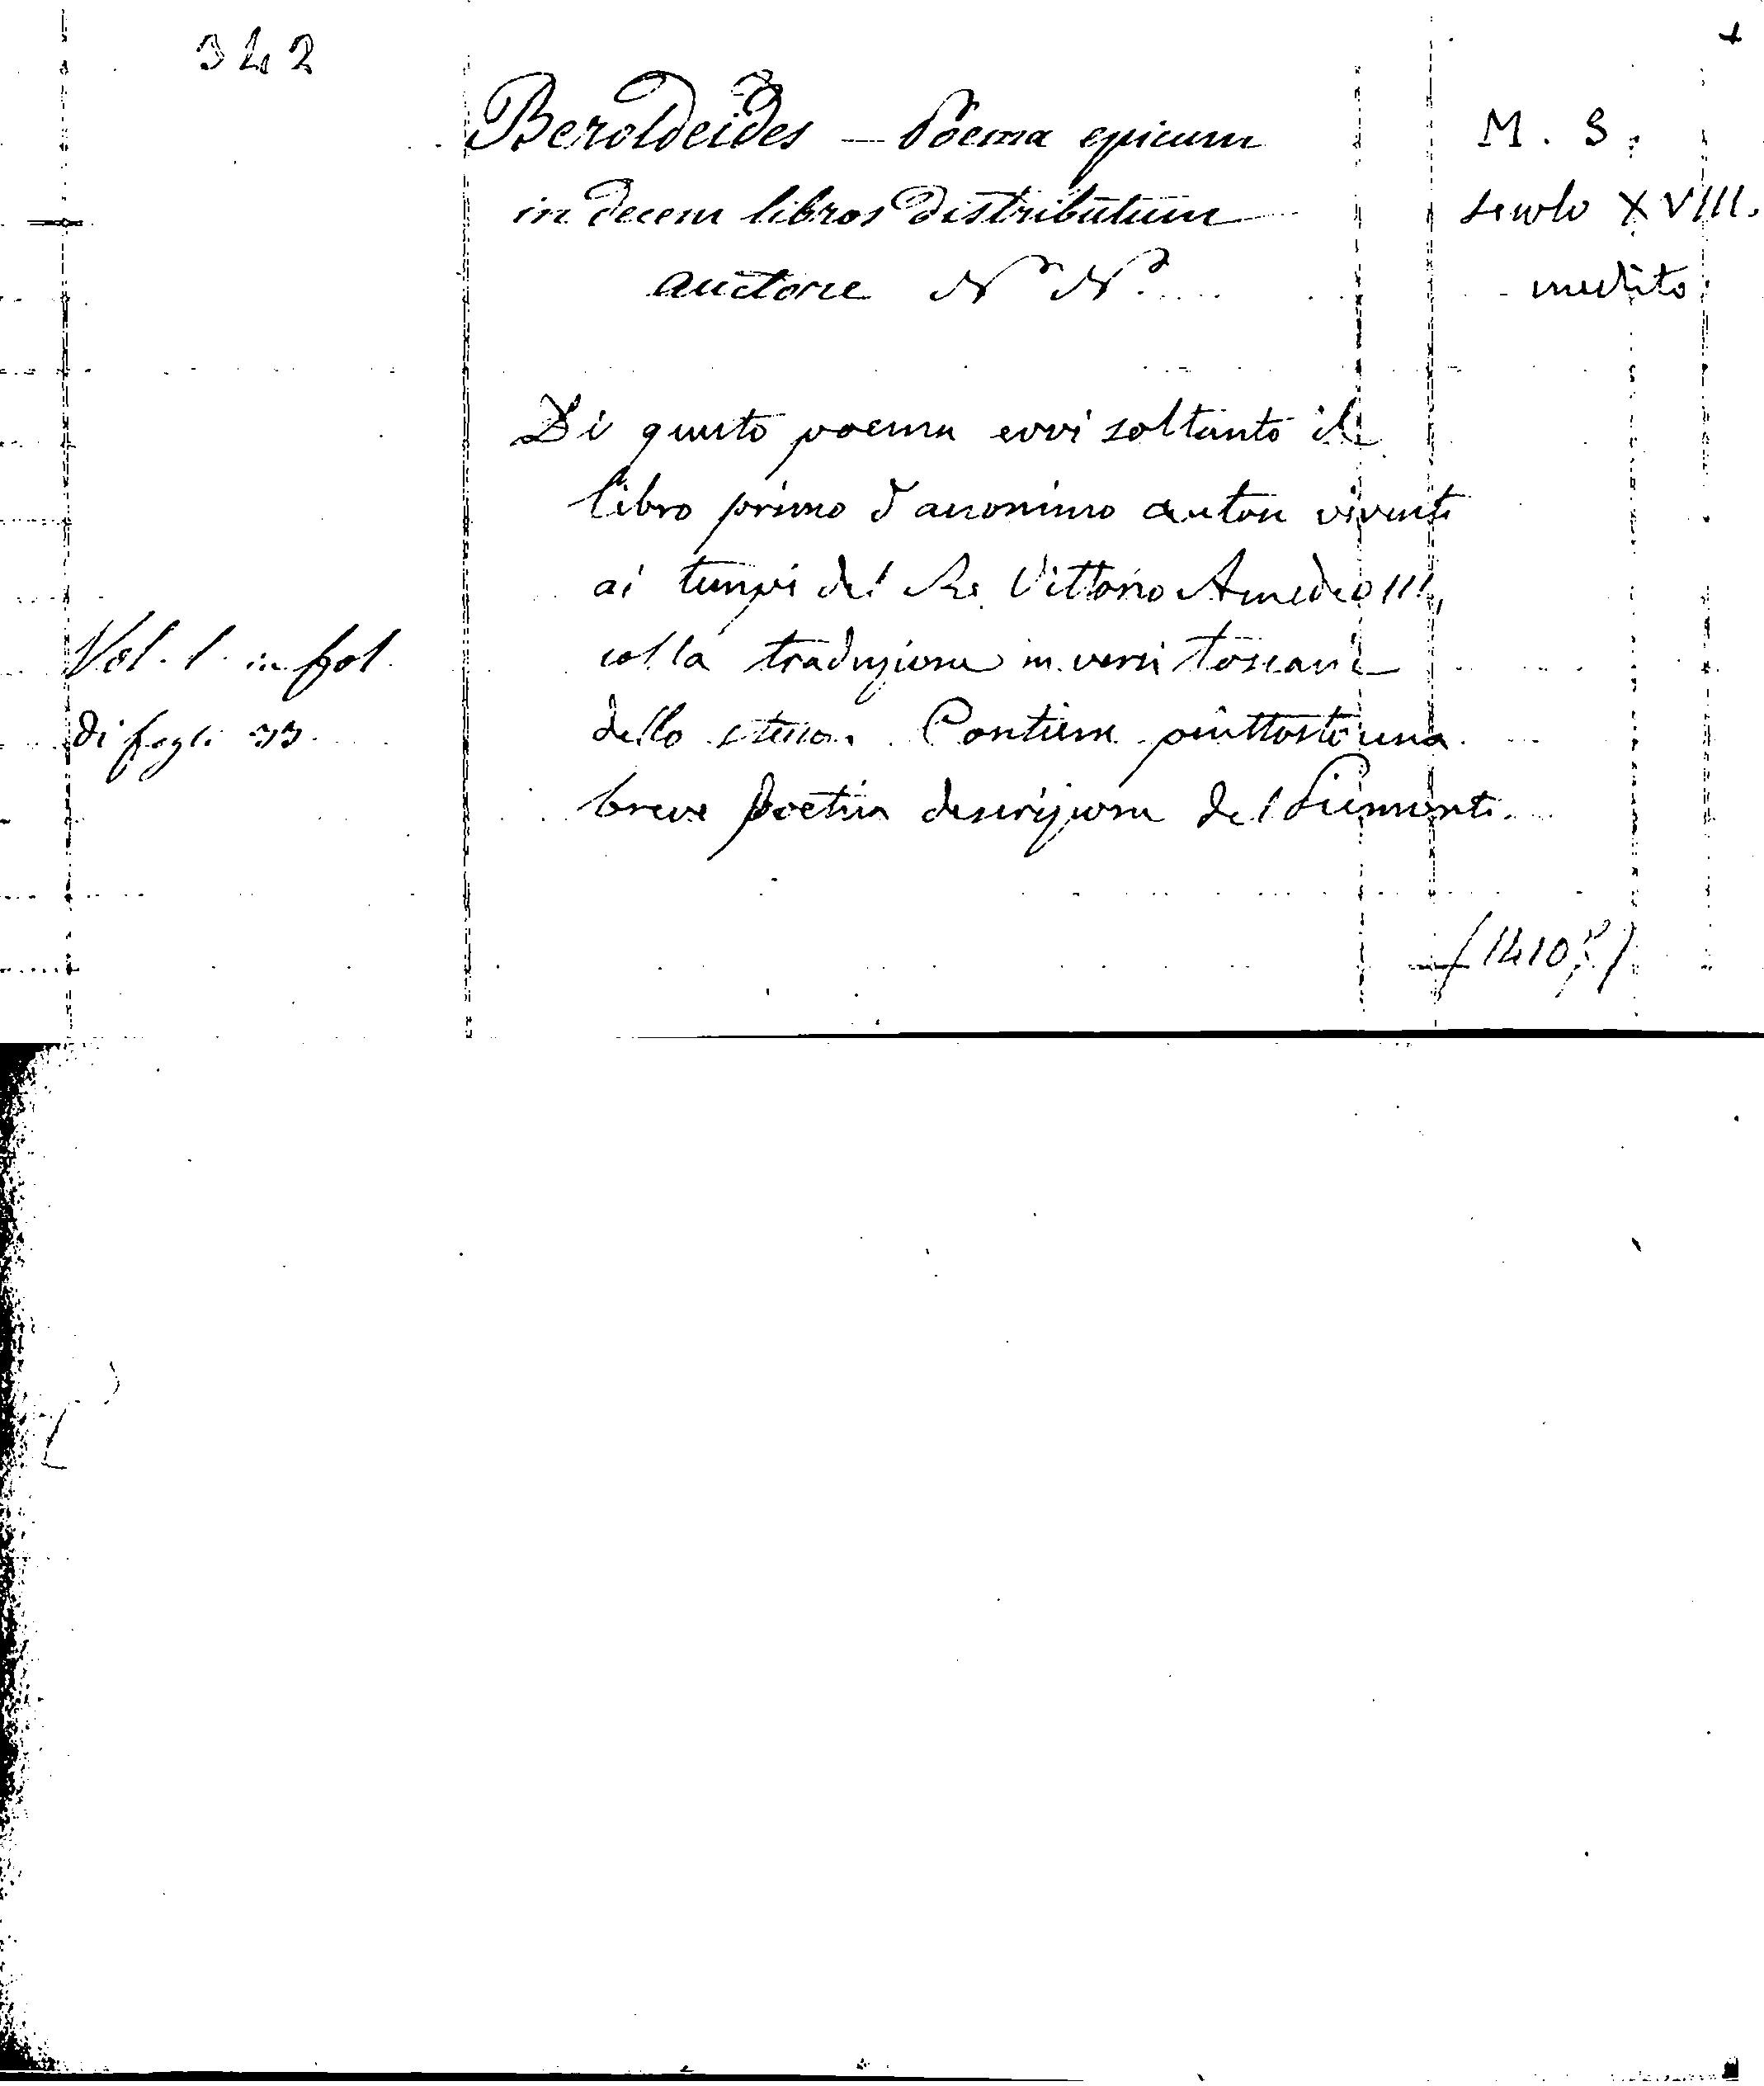 342
Beroldeides — Poema epicum
in decem libros distributum
auctore N. N.
M. S.
secolo XVIII.
inedito
Di questo poema evvi soltanto il
libro primo d'anonimo autore vivente
ai tempi del Re Vittorio Amedeo III,
colla traduzione in versi toscani
dello stesso. Contiene piuttosto una
breve poetica descrizione del Piemonte.
Vol. 1. in fol.
di fogli 33.